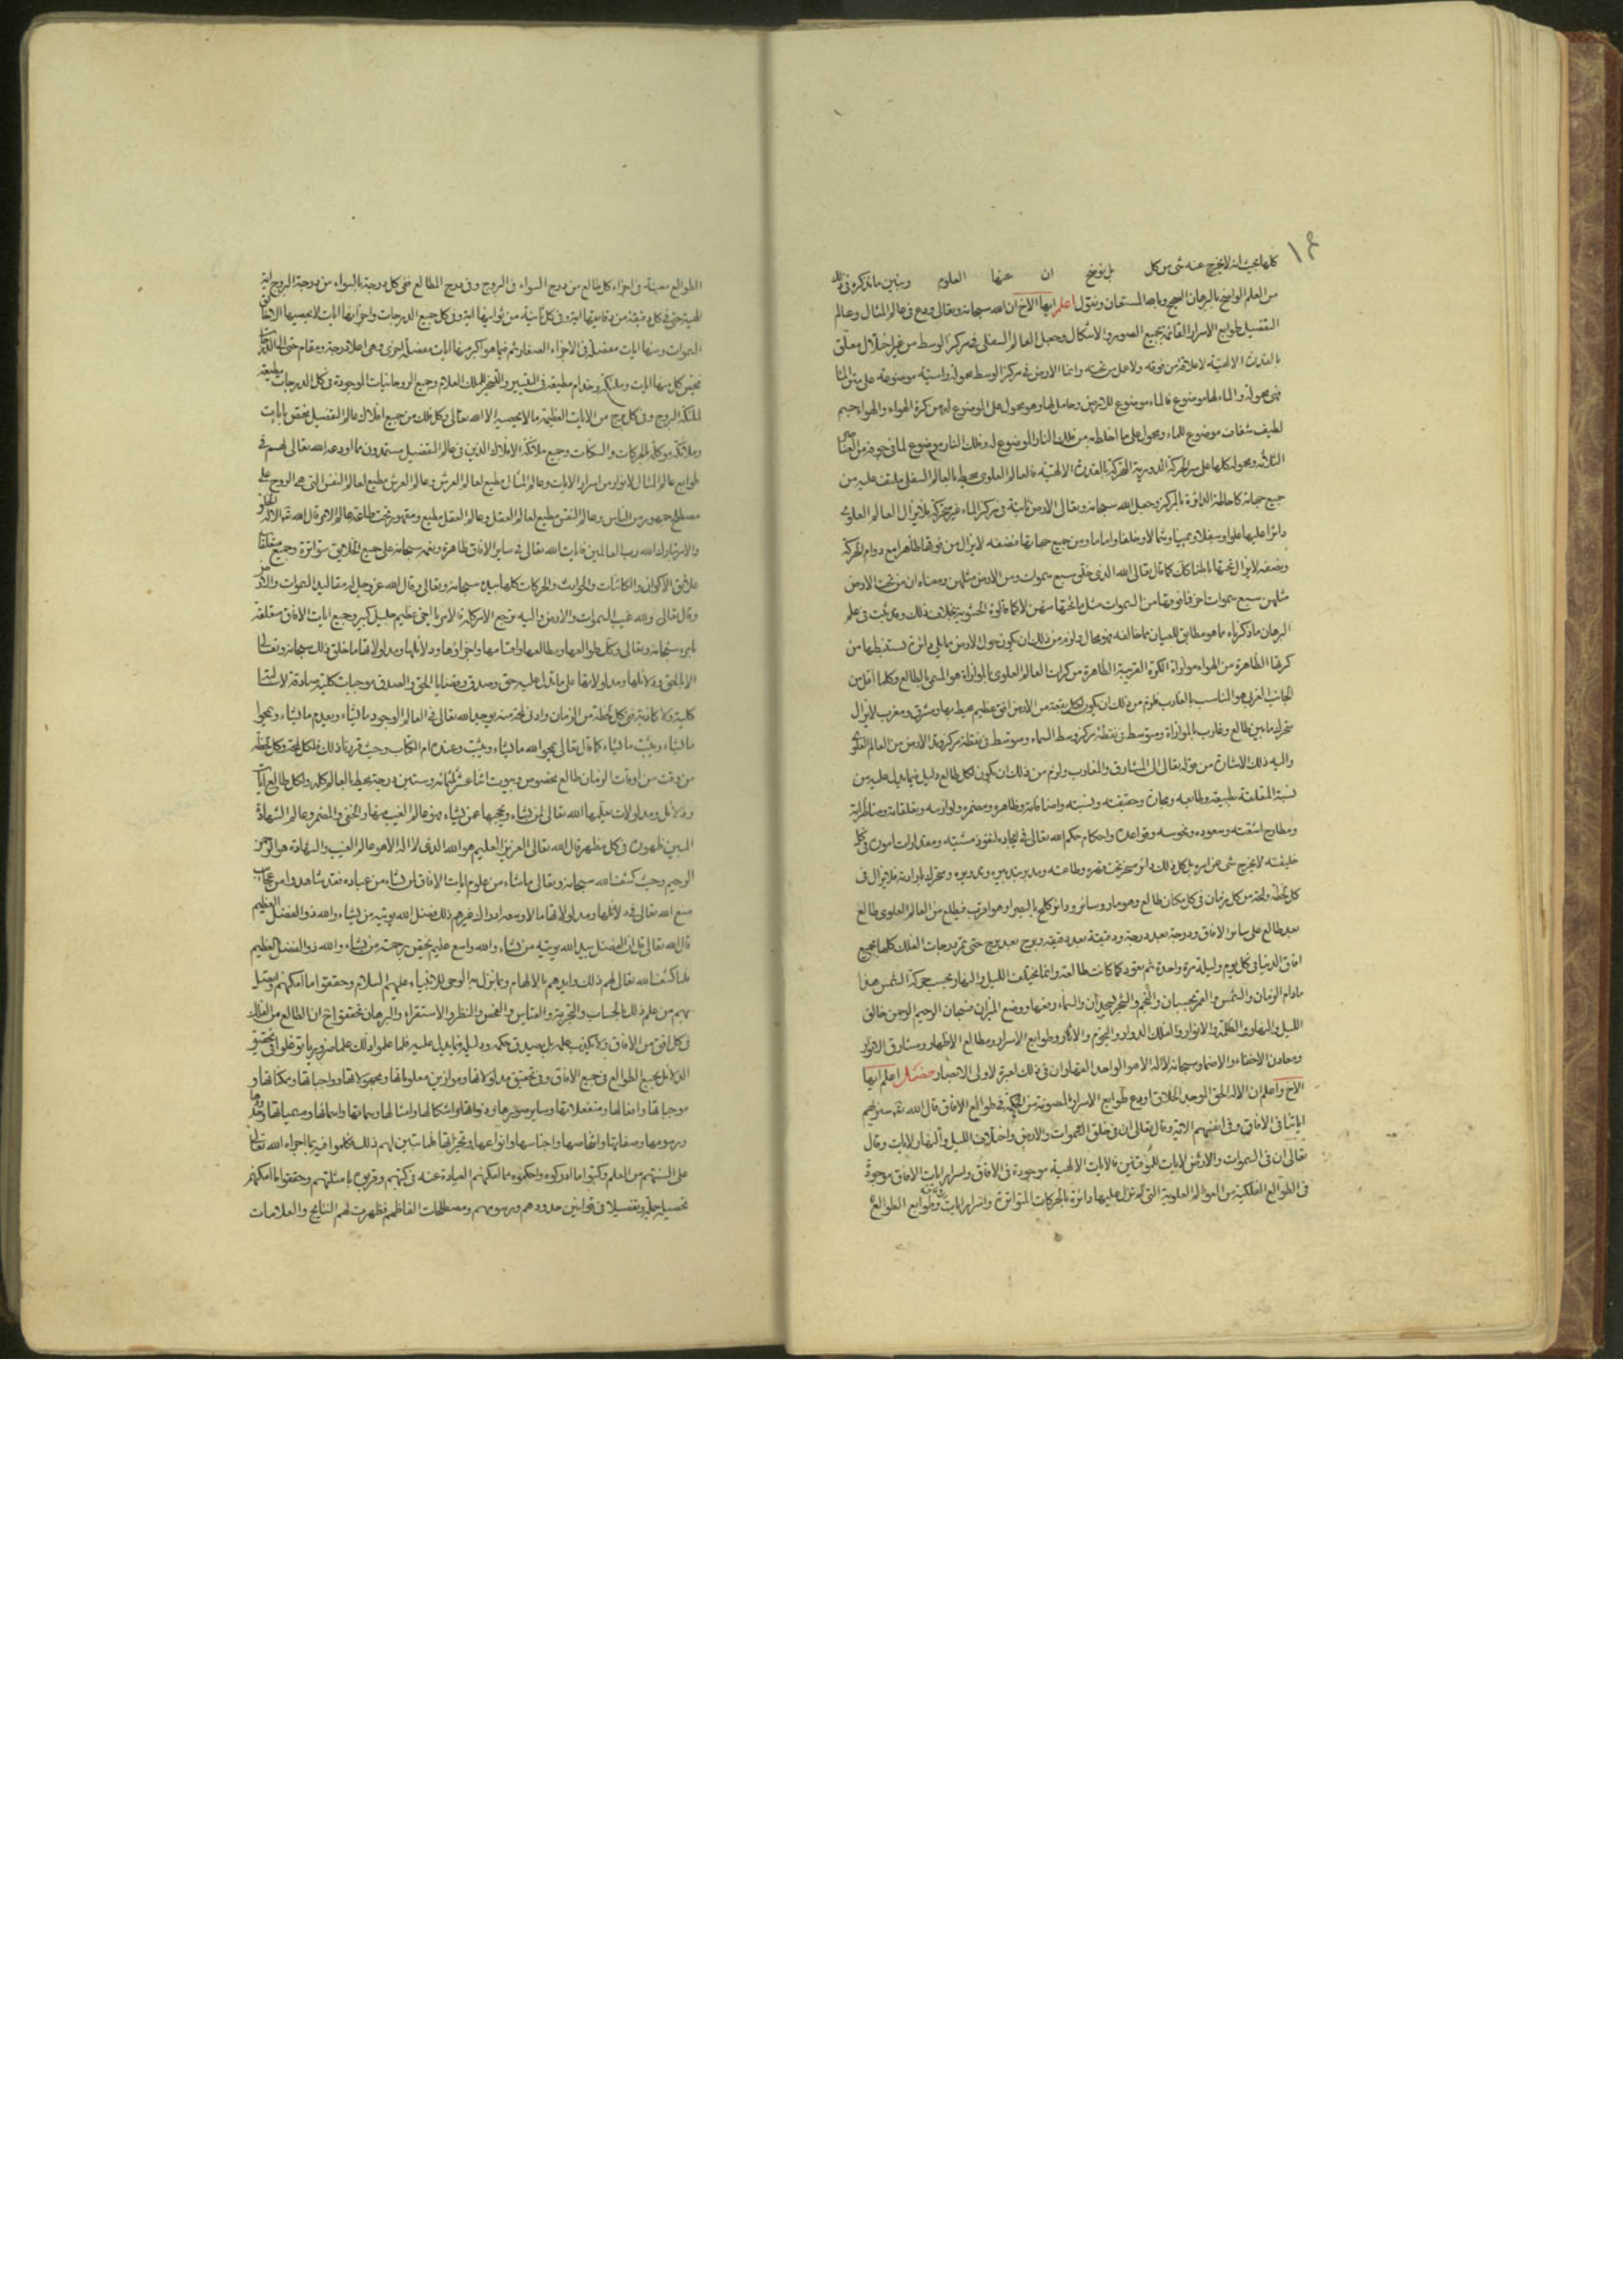 ١٤
كلها بحيث انه لا يخرج عنه شى من كل بل نوضح ان عنها العلوم ونبين ما نذكره فى ذلك
من العلم الواضح بالبرهان الصحيح وبالله المستعان ونقول اعلم ايها الاخ ان الله سبحانه وتعالى ودع فى عالم المثال وعالم
التفصيل طوابع الاسرار القائمة بجميع الصور والاشكال وجعل العالم السفلى فى مركز الوسط من غير اختلال معلق
بالقدرة الالهية لا علاقة من فوقه ولا حامل من تحته وانما الارض فى مركز الوسط محولة راسية موضوعة على متن الماء
فهى محولة والماء لها موضوع فالماء موضوع للارض وحامل لها وهو محول على الموضوع له من كرة الهواء والهواء جسم
لطيف شفاف موضوع للماء ومحول على ما احاط به من فلك النار الموضوع له وفلك النار موضوع لما فى جوفه من العناصر
الثلاثة ومحوله كلها على سر الحركة الدورية المحركة بالقدرة الالهية فالعالم العلوى محيط بالعالم السفلى ملتف عليه من
جميع جهاته كاحاطة الدائرة بالمركز وجعل الله سبحانه وتعالى الارض ثابتة فى مركز الماء غير متحركة فلا يزال العالم العلوى
دائرا عليها علوا وسفلا ويمينا وشمالا وخلفا واماما ومن جميع جهاتها فنصفه لا يزال من فوقها ظاهرا مع دوام الحركة
ونصفه لا يزال تحتها باطنا كذلك كما قال تعالى الله الذى خلق سبع سموات ومن الارض مثلهن ومعناه ان من تحت الارض
مثلهن سبع سموات اخر فا فوقها من السموات مثل ما تحتها منهن لا كما قالوه الحشوية بخلاف ذلك وقد ثبت فى علم
البرهان ما ذكرناه ما هو مطابق للعيان فما خالفه فهو محال ولزم من ذلك ان يكون حول الارض ما يلى دائرة تستنبطها من
كرتها الظاهرة من الهواء موازاة الكرة القريبة الظاهرة من كرات العالم العلوى بالموازاة هو المسمى بالطالع وكلما افل من
الجانب الغربى هو المناسب بالغارب فلزم من ذلك ان يكون لكل بقعة من الارض افق عظيم محيط بها ومشرق ومغرب لا يزال
متحرك ما بين طالع وغارب بالموازاة ومتوسط فى نقطة مركز وسط السماء ومتوسط فى نقطة مركز وتد الارض من العالم العلوى
واليه ذلك الاشارة من قوله تعالى الى المشارق والمغارب ولزم من ذلك ان يكون لكل طالع دليل فيما يدل عليه من
نسبة المتعلقة بطبيعته وطابعه ومجازه وحقيقته ونسبته واضافاته وظاهره ومضمره ولوازمه وتعلقاته ومناظراته
ومطارح اشعته وسعوده ونحوسه وقواعده واحكام حكم الله تعالى فى ايجاده لنفوذ مشيته ومقدورات امره فى كل
خليقته لا يخرج شى عن امره بل كل ذلك دائر مسخر تحت قهره وطاعته ومدبر بتدبيره وتدويره ومتحرك بارادته فلا يزال فى
كل لحظة ولمحة من كل زمان فى كل مكان طالع وهو مار وسائر ودائر كلمح بالبصر او هو اقرب فيطلع من العالم العلوى طالع
بعد طالع على سائر الافاق ودرجة بعد درجة ودقيقة بعد دقيقة وبرج بعد برج حتى تمر درجات الفلك كلها بجميع
افاق الدنيا فى كل يوم وليلة مرة واحدة ثم تعود كما كانت طالعة وانما يختلف الليل والنهار بحسب حركة الشمس هذا
مادام الزمان والشمس والقمر بحسبان والنجم والشجر يسجدان والسماء رفعها ووضع الميزان فسبحان الرحيم الرحمن خالق
الليل والنهار والظلمة والانوار والفلك الدوار والنجوم والاكار وطوابع الاسرار ومطالع الاظهار ومشارق الانوار
ومعادن الاخفاء والاضمار سبحانه لا اله الا هو الواحد القهار ان فى ذلك لعبرة لاولى الاعتبار فصل اعلم ايها
الاخ واعلم ان الاله الحق الموجد الخلاق اودع طوابع الاسرار المصونة من الحكمة فى طوالع الافاق قال الله تعالى سنريهم
اياتنا فى الافاق وفى انفسهم الاية وقال تعالى ان فى خلق السموات والارض واختلاف الليل والنهار لايات وقال
تعالى ان فى السموات والارض لايات للموقنين فالايات الالهية موجودة فى الافاق واسرار ايات الافاق موجودة
فى الطوالع الفلكية من العوالم العلوية التى لم تزل عليها دائرة بالحركات المتواترة واسرار ايات وطوابع الطوالع
الطوالع معينة فى اجزاء كل طالع من درج السواء فى البروج وفى درج المطالع ففى كل درجة بالسواء من درجة البروج اية
الهية حتى فى كل دقيقة من دقايقها اية وفى كل ثانية من ثوانيها اية وفى كل جميع الدرجات واجزائها ايات لا يحصيها الا خالق
السموات ومنها ايات مفصلة فى الاجزاء الصغار ثم فيما هو اكبر منها ايات مفصلة اخرى وهى اعلا درجة ومقام حتى
يختص كل منها ايات وملائكة وخدام مطيعة فى التسيير والتسخير للملك العلام وجميع الروحانيات الموجودة فى كل الدرجات مطيعة
لملائكة البروج وفى كل برج من الايات العظيمة ما لا يحصيه الا الله تعالى وكل فلك من جميع افلاك عالم التفصيل يختص بايات
وملائكة موكلة بالحركات والسكنات وجميع ملائكة الافلاك الذين فى عالم التفصيل يستمدون مما اودعه الله تعالى لهم فى
طوابع عالم المثال لانواع من اسرار الايات وعالم المثال مطيع لعالم العرش وعالم العرش مطيع لعالم النفس التى هى الروح على
مصطلح جمهور من الناس وعالم النفس مطيع لعالم العقل وعالم العقل مطيع ومقهور تحت طاعة عالم الامر قال الله تعالى الا له الخلق
والامر تبارك الله رب العالمين فايات الله تعالى فى ساير الافاق ظاهرة ونعمه سبحانه على جميع الخلايق متواترة وجميع متعلقات
علائق الاكوان والكائنات والحوادث والحركات كلها بيده سبحانه وتعالى وقال الله عز وجل له مقاليد السموات والارض
وقال تعالى ولله غيب السموات والارض واليه يرجع الامر كله فالامر بالحق عظيم جليل كبير وجميع ايات الافاق متعلقة
بامره سبحانه وتعالى وكل طوالعها ومطالعها واقسامها واجزاؤها ودلائلها ومدلولاتها ما خلق ذلك سبحانه وتعالى
الا بالحق ودلائلها ومدلولاتها على ما تدل عليه حق وصدق وقضايا الحق والصدق موجبات كلية صادقة لا سالبة
كلية ولا كاذبة ففى كل لحظة من الزمان وادنى لمحة منه يوجد الله تعالى فى العالم الوجود ما يشاء ويعدم ما يشاء ويمحوا
ما يشاء ويثبت ما يشاء كما قال تعالى يمحو الله ما يشاء ويثبت وعنده ام الكتاب وحيث قررنا ذلك فلكل لمحة وكل لحظة
من وقت من اوقات الزمان طالع مخصوص وبيوت اثنا عشر ثلثمائة وستين درجة محيط بالعالم كله ولكل طالع ايات
ودلائل ومدلولات يعلمها الله تعالى لمن يشاء ويحجبها عن من يشاء فهو عالم الغيب منها والخفى والمضمر وعالم الشهادة
المبين ظهوره فى كل مظهر قال الله تعالى العزيز العليم هو الله الذى لا اله الا هو عالم الغيب والشهادة هو الرحمن
الرحيم وحيث كشف الله سبحانه وتعالى ما شاء من علوم ايات الافاق لمن شاء من عباده فقد شاهدوا من عجايب
صنع الله تعالى فى دلائلها ومدلولاتها ما لا وسعه ادراك غيرهم ذلك فضل الله يوتيه من يشاء والله ذو الفضل العظيم
قال الله تعالى قل ان الفضل بيد الله يوتيه من يشاء والله واسع عليم يختص برحمته من يشاء والله ذو الفضل العظيم
فلما كشف الله تعالى لهم ذلك وايدهم بالالهام وبما نزل به الوحى للانبياء عليهم السلام وحققوا ما امكنهم واتصل
بهم من علم ذلك بالحساب والتجربة والقياس والفحص والنظر والاستقراء والبرهان تحققوا ان الطالع من الفلك
فى كل افق من الافاق ولا يكذب علمه بل يصدق حكمه ودليله فيما يدل عليه فلما علموا ذلك علما ضروريا توغلوا فى تحقيق
الدلائل بجميع الطوالع فى جميع الافاق وفى تحقيق مدلولاتها وموازين معلوماتها ومجهولاتها وواجباتها وممكناتها و
موجباتها وافعالها ومنفعلاتها وساير صورها وذواتها واشكالها وامثالها وسماتها واسمائها ومسمياتها وحدودها
ورسومها وصفاتها واشخاصها واجناسها وانواعها وتجزائتها فلما تبين لهم ذلك تكلموا فيه بما اجراه الله تعالى
على السنتهم من العلم وكتبوا ما ادركوه واحكموه مما امكنهم العبارة عنه فى كتبهم وقربوه بامثلتهم وحققوا ما امكنهم
تحصيله جملة وتفصيلا فى قوانين حدودهم ورسومهم ومصطلحات الفاظهم فظهرت لهم النتايج والعلامات